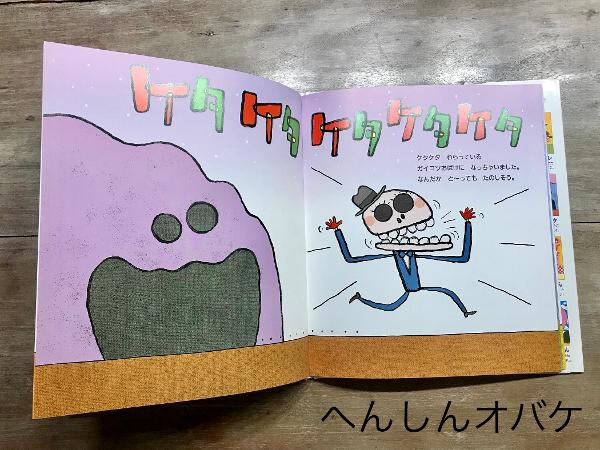 ケタケタケタケタケタ
ケタケタ わらっている
ガイコツおばけに なっちゃいました。
なんだか と〜っても たのしそう。
へんしんオバケ